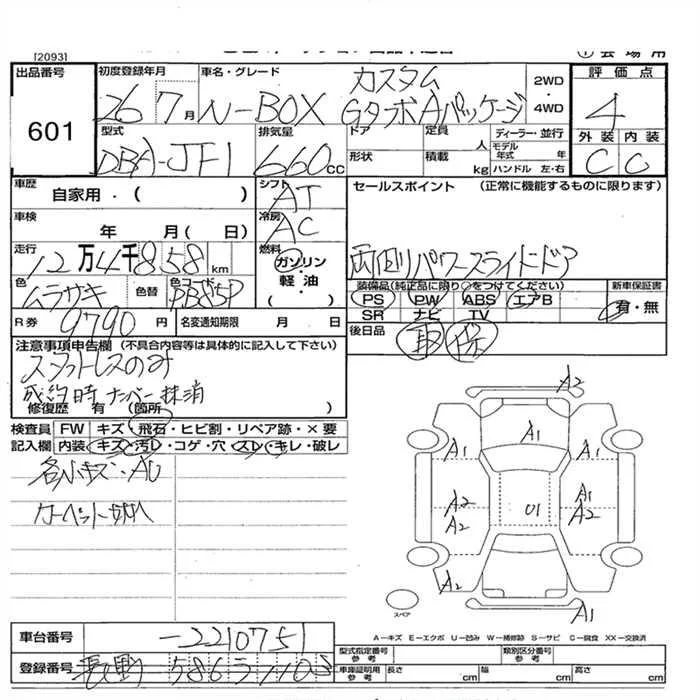 [2093]
出品番号
601
初度登録年月
26 7月
車名・グレード
N-BOX
カスタム
GターボAパッケージ
2WD
・
4WD
評価点
4
外装 内装
C C
型式
DBA-JF1
排気量
660cc
ドア
定員
人
ディーラー・並行
モデル
年式 年
形状
積載
kg
ハンドル 左・右
車歴
自家用・( )
シフト
AT
セールスポイント (正常に機能するものに限ります)
両側パワースライドドア
車検
年 月( 日)
冷房
AC
走行
12万4千858km
燃料
ガソリン
・
軽油
・
( )
色
ムラサキ
色替
色コード
PB85P
装備品(純正品に限り○をつけてください)
PS PW ABS エアB
SR ナビ TV
新車保証書
有・無
R券
9790円
名変通知期限 月 日
後日品
取 保
注意事項申告欄 (不具合内容等は具体的に記入して下さい)
スタットレスのみ
成約時 ナンバー抹消
修復歴 有 (箇所 )
検査員 FW キズ・飛石・ヒビ割・リペア跡・×要
記入欄 内装 キズ・汚レ・コゲ・穴・スレ・キレ・破レ
各小キズ・AU
カーペット切れ
A2
A1
A1
A1
A2
A2
U1
A1
A2
A2
A1
スペア
A-キズ E-エクボ U-凹み W-補修跡 S-サビ C-腐食 XX-交換済
車台番号
-2210751
登録番号
型式指定番号
参考
類別区分番号
参考
車庫証明用
参考
長さ cm
幅 cm
高さ cm